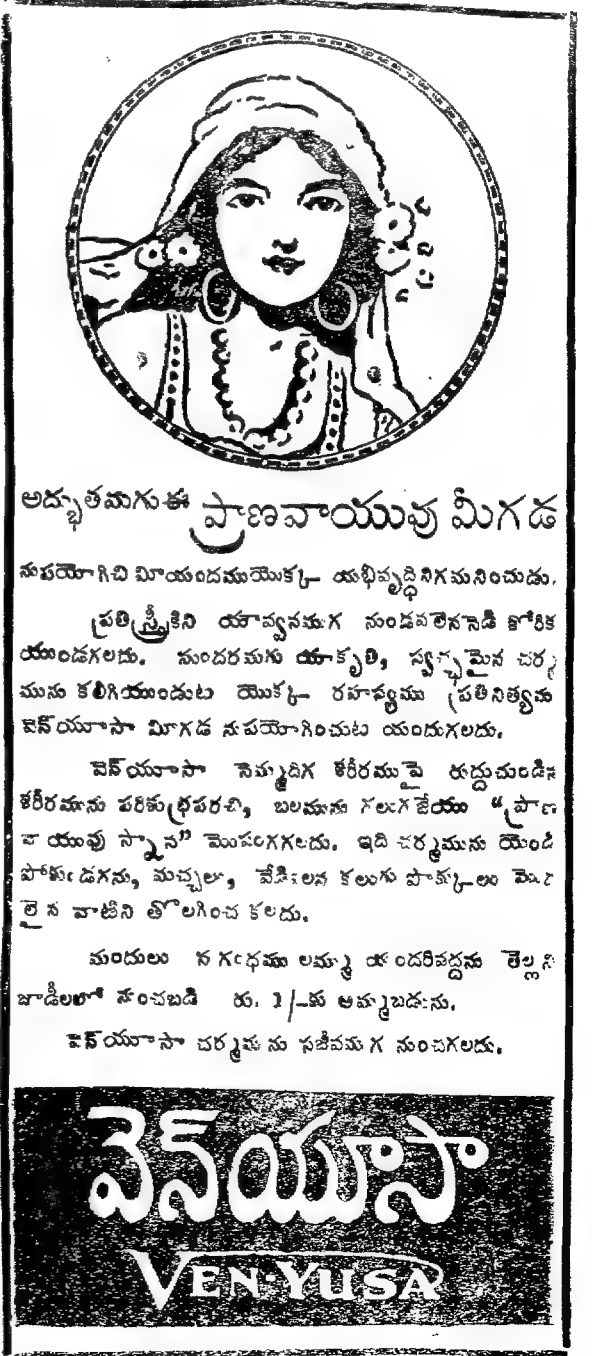 అద్భుతమగు ఈ ప్రాణవాయువు మీగడ
నుపయోగిచి మీయందముయొక్క యభివృద్ధినిగమనించుడు.
ప్రతి స్త్రీకిని యావ్వనముగ నుండవలెననెడి కోరిక
యుండగలదు. సుందరమగు యాకృతి, స్వచ్ఛమైన చర్మ
మును కలిగియుండుట యొక్క రహస్యము ప్రతినిత్యము
వెన్‌యూసా మీగడ నుపయోగించుట యందుగలదు.
వెన్‌యూసా నెమ్మదిగ శరీరముపై రుద్దుచుండిన
శరీరమును పరిశుభ్రపరచి, బలమును గలుగజేయు "ప్రాణ
వాయువు స్నాన" మొసంగగలదు. ఇది చర్మమును యెండి
పోకుండగను, మచ్చలు, వేడివలన కలుగు పొక్కులు మొద
లైన వాటిని తొలగించ కలదు.
మందులు సుగంధములమ్మా యందరివద్దను తెల్లని
జాడీలలో నుంచబడి రు. 1/-కు అమ్మబడును.
వెన్‌యూసా చర్మమును సజీవముగ నుంచగలదు.
వెన్‌యూసా
VEN-YUSA